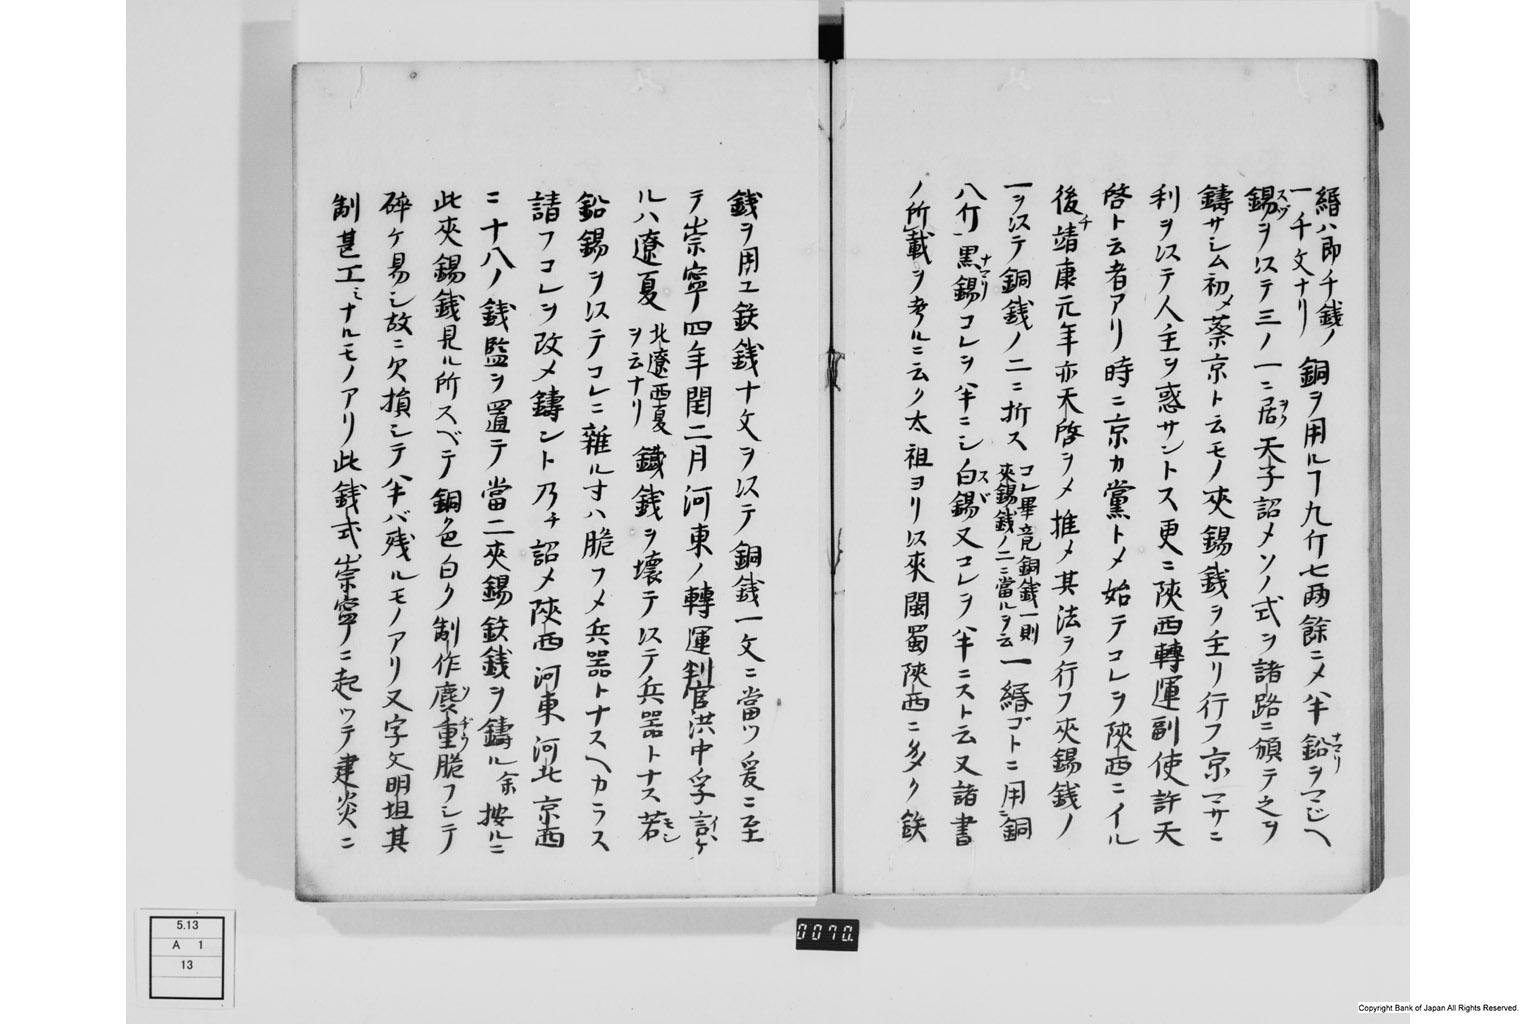 緡ハ即千銭ノ一千文ナリ 銅ヲ用ルヿ九斤七両餘ニメ半鉛ヲマジヘ
錫ヲ以テ三ノ一ニ居 天子詔メソノ式ヲ諸路ニ頒テ之ヲ
鑄サシム初メ蔡京ト云モノ夾錫銭ヲ主リ行フ京マサニ
利ヲ以テ人主ヲ惑サントス更ニ陝西轉運副使許天
啓ト云者アリ時ニ京カ黨トメ始テコレヲ陝西ニイル
後チ靖康元年亦天啓ヲメ推メ其法ヲ行フ夾錫銭ノ
一ヲ以テ銅銭ノ二ニ折ス コレ畢竟銅銭一則夾錫銭ノ二ニ當ルヲ云 一緡ゴトニ用ニ銅
八斤 黒錫コレヲ半ニシ白錫又コレヲ半ニスト云又諸書
ノ所載ヲ考ルニ云ク太祖ヨリ以来閩蜀陝西ニ多ク鉄
銭ヲ用エ鉄銭十文ヲ以テ銅銭一文ニ當ツ爰ニ至
テ崇寧四年閏二月河東ノ轉運判官洪中孚言ケ
ルハ遼夏 北遼西夏ヲ云ナリ 鐵銭ヲ壊テ以テ兵器トナス若
鉛錫ヲ以テコレニ雜ル寸ハ脆フメ兵器トナスヘカラス
請フコレヲ改メ鑄ント乃チ詔メ陝西河東河北京西
ニ十八ノ銭監ヲ置テ當二夾錫鉄銭ヲ鑄ル余按ルニ
此夾錫銭見ル所スベテ銅色白ク制作麁重脆フシテ
砕ケ易シ故ニ欠損シテ半バ残ルモノアリ又字文明坦其
制甚工ミナルモノアリ此銭式崇寧ニ起ッテ建炎ニ
5.13
A 1
13
0070.
Copyright Bank of Japan All Rights Reserved.